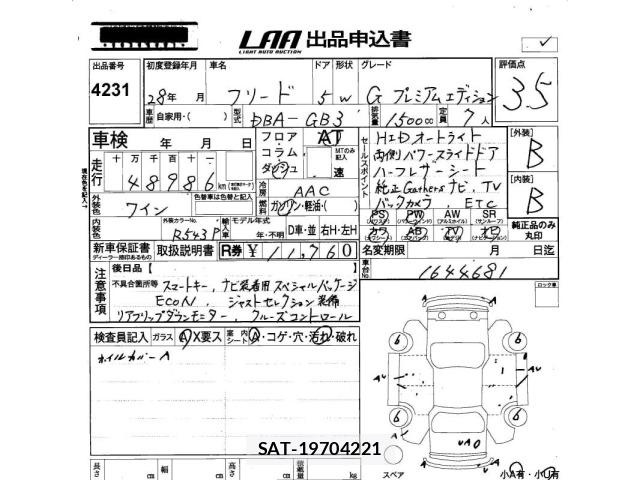 LAA 出品申込書
LIGHT AUTO AUCTION
出品番号 4231
初度登録年月 28年 月
車名 フリード
ドア 5 形状 W
グレード G プレミアムエディション
評価点 3.5
車歴 自家用・( )
型式 DBA-GB3
排気量 1500cc
定員 7人
車検 年 月 日
フロア AT
コラム MTのみ記入
ダッシュ 速
セールスポイント
HIDオートライト
両側パワースライドドア
ハーフレザーシート
純正Gathersナビ、TV
バックカメラ、ETC
[外装] B
[内装] B
走行 十万千百十一
48986 km
冷房 AAC
燃料 ガソリン・軽油・( )
外装色 ワイン
色替車は色替と記入
内装色
外装カラーNo. R543P
輸入車
モデル年式 年・不明
D車・並 右H・左H
PS PW AW SR
(パワーステ) (パワーウィンド) (アルミホイル) (サンルーフ)
カワ AB TV ナビ
純正品のみ丸印
新車保証書
ディーラー捺印あるもの
取扱説明書
R券 ¥11,760
名変期限 月 日迄
車台No. 1644681
注意事項
後日品【 】
不具合箇所等 スマートキー、ナビ装着用スペシャルパッケージ
ECON、ジャストセレクション装備
リアフリップダウンモニター、クルーズコントロール
ロック車
検査員記入 ガラス A X要ス
室内シート A・コゲ・穴・汚れ・破れ
ホイルカバーA
6 6
AU AU
6 6
UA0
SAT-19704221
長さ cm 幅 cm 高さ cm 積載量 kg
スペア
小A有・小U有